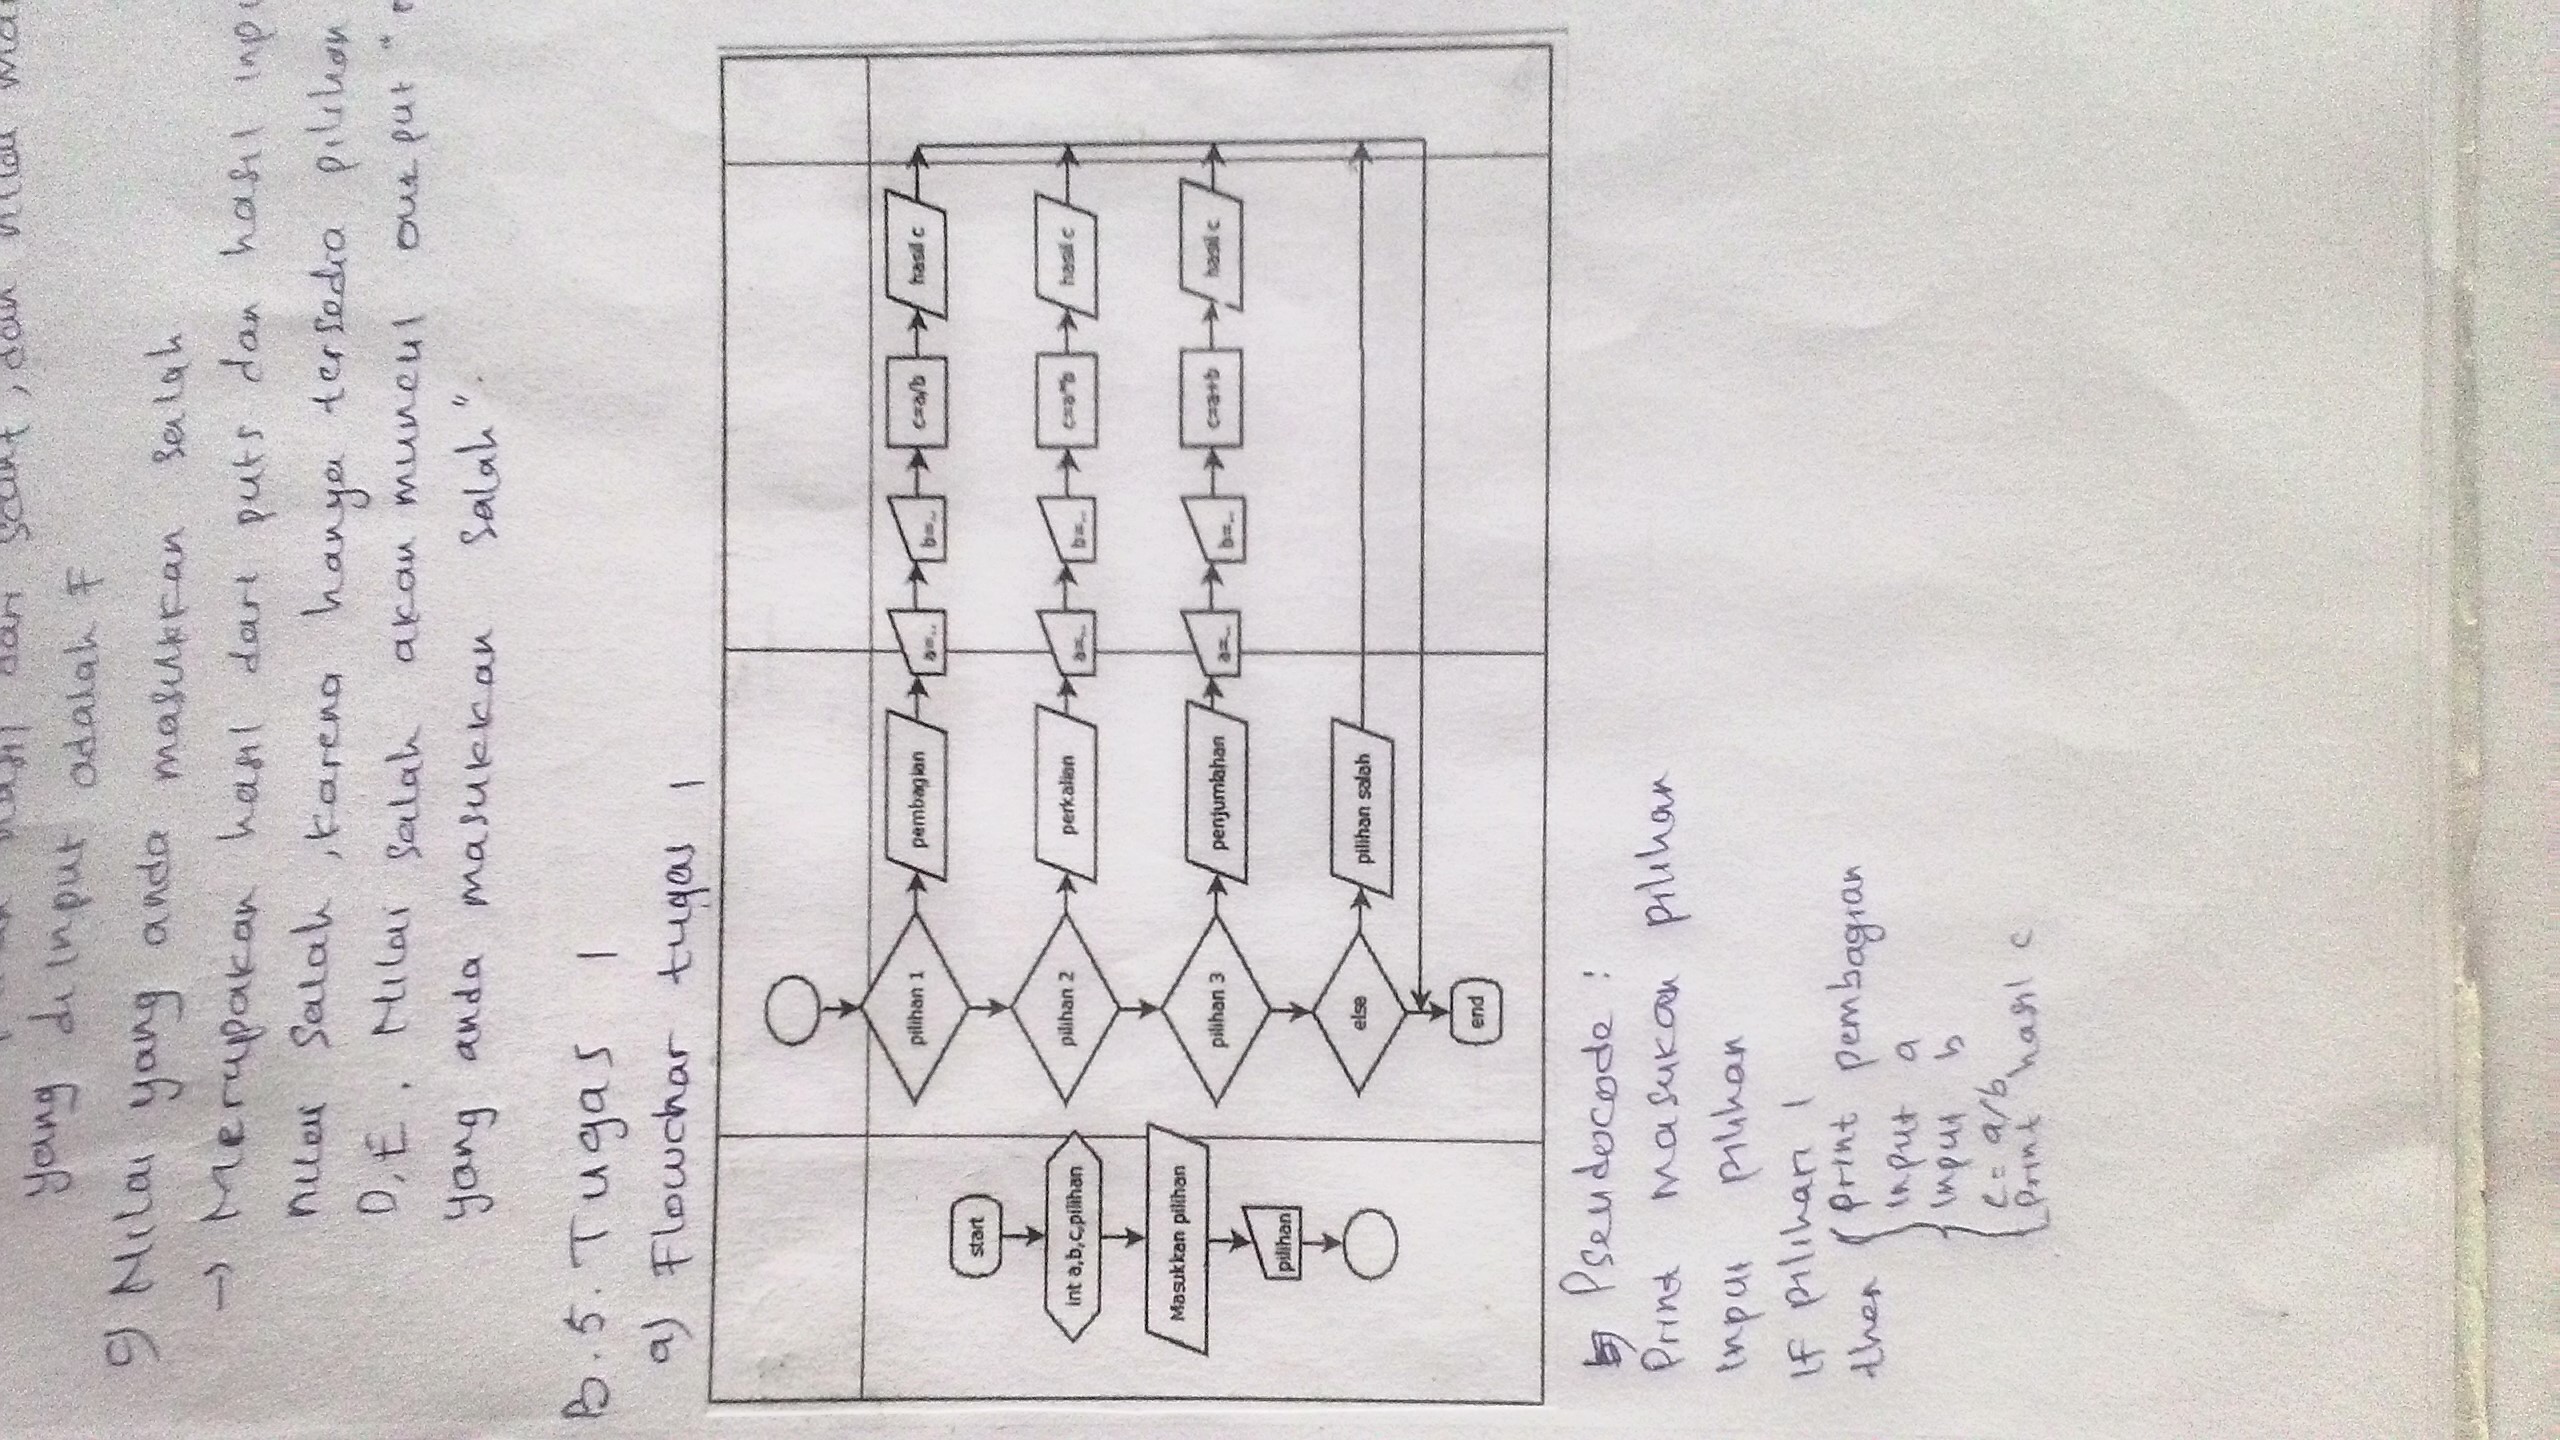 yang diinput adalah F
g) Nilai yang anda masukkan salah
→ Merupakan hasil dari puts dan hasil
nilai salah, karena hanya tersedia pilihan
D, E. Nilai salah akan muncul output "
yang anda masukkan salah".
B.5. Tugas 1
a) Flowchar tugas 1
start
int a,b,c,pilihan
Masukkan pilihan
pilihan
pilihan 1
pembagian
a=..
b=..
c=a/b
hasil c
pilihan 2
perkalian
a=..
b=..
c=a*b
hasil c
pilihan 3
penjumlahan
a=..
b=..
c=a+b
hasil c
else
pilihan salah
end
b) Pseudocode :
Print masukan pilihan
Input pilihan
If pilihan 1
then { print pembagian
input a
input b
c = a/b
print hasil c